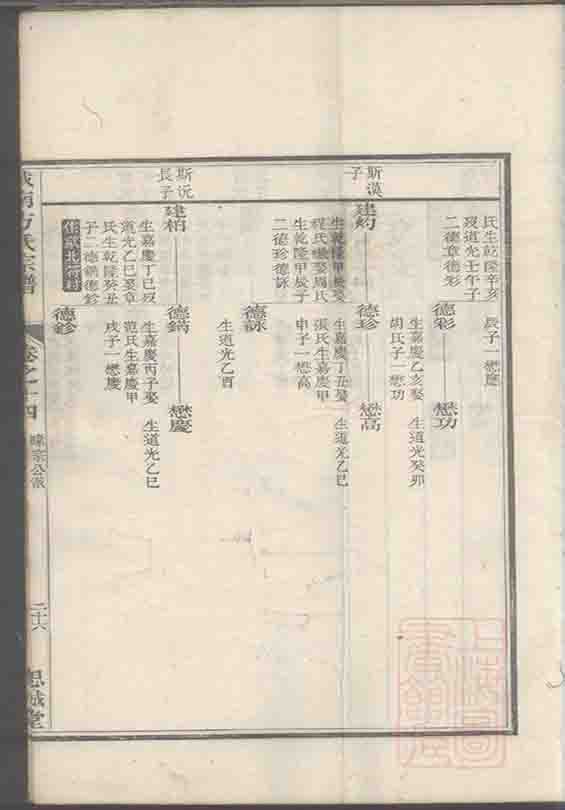 氏生乾隆辛亥
歿道光壬午子
二德章德彩
辰子一懋慶
德彩
生嘉慶乙亥娶
胡氏子一懋功
懋功
生道光癸卯
斯漠
子
建灼
生乾隆甲辰娶
程氏繼娶周氏
生乾隆甲辰子
二德珍德詠
德珍
生嘉慶丁丑娶
張氏生嘉慶甲
申子一懋高
懋高
生道光乙巳
德詠
生道光乙酉
斯沅
長子
建柏
生嘉慶丁巳歿
道光乙巳娶章
氏生乾隆癸丑
子二德鎬德鉁
住歙北
村
德鎬
生嘉慶丙子娶
范氏生嘉慶甲
戌子一懋慶
懋慶
生道光乙巳
德鉁
城南方氏宗譜
卷之十四
宗公派
二十六
思誠堂
上海圖
書館藏